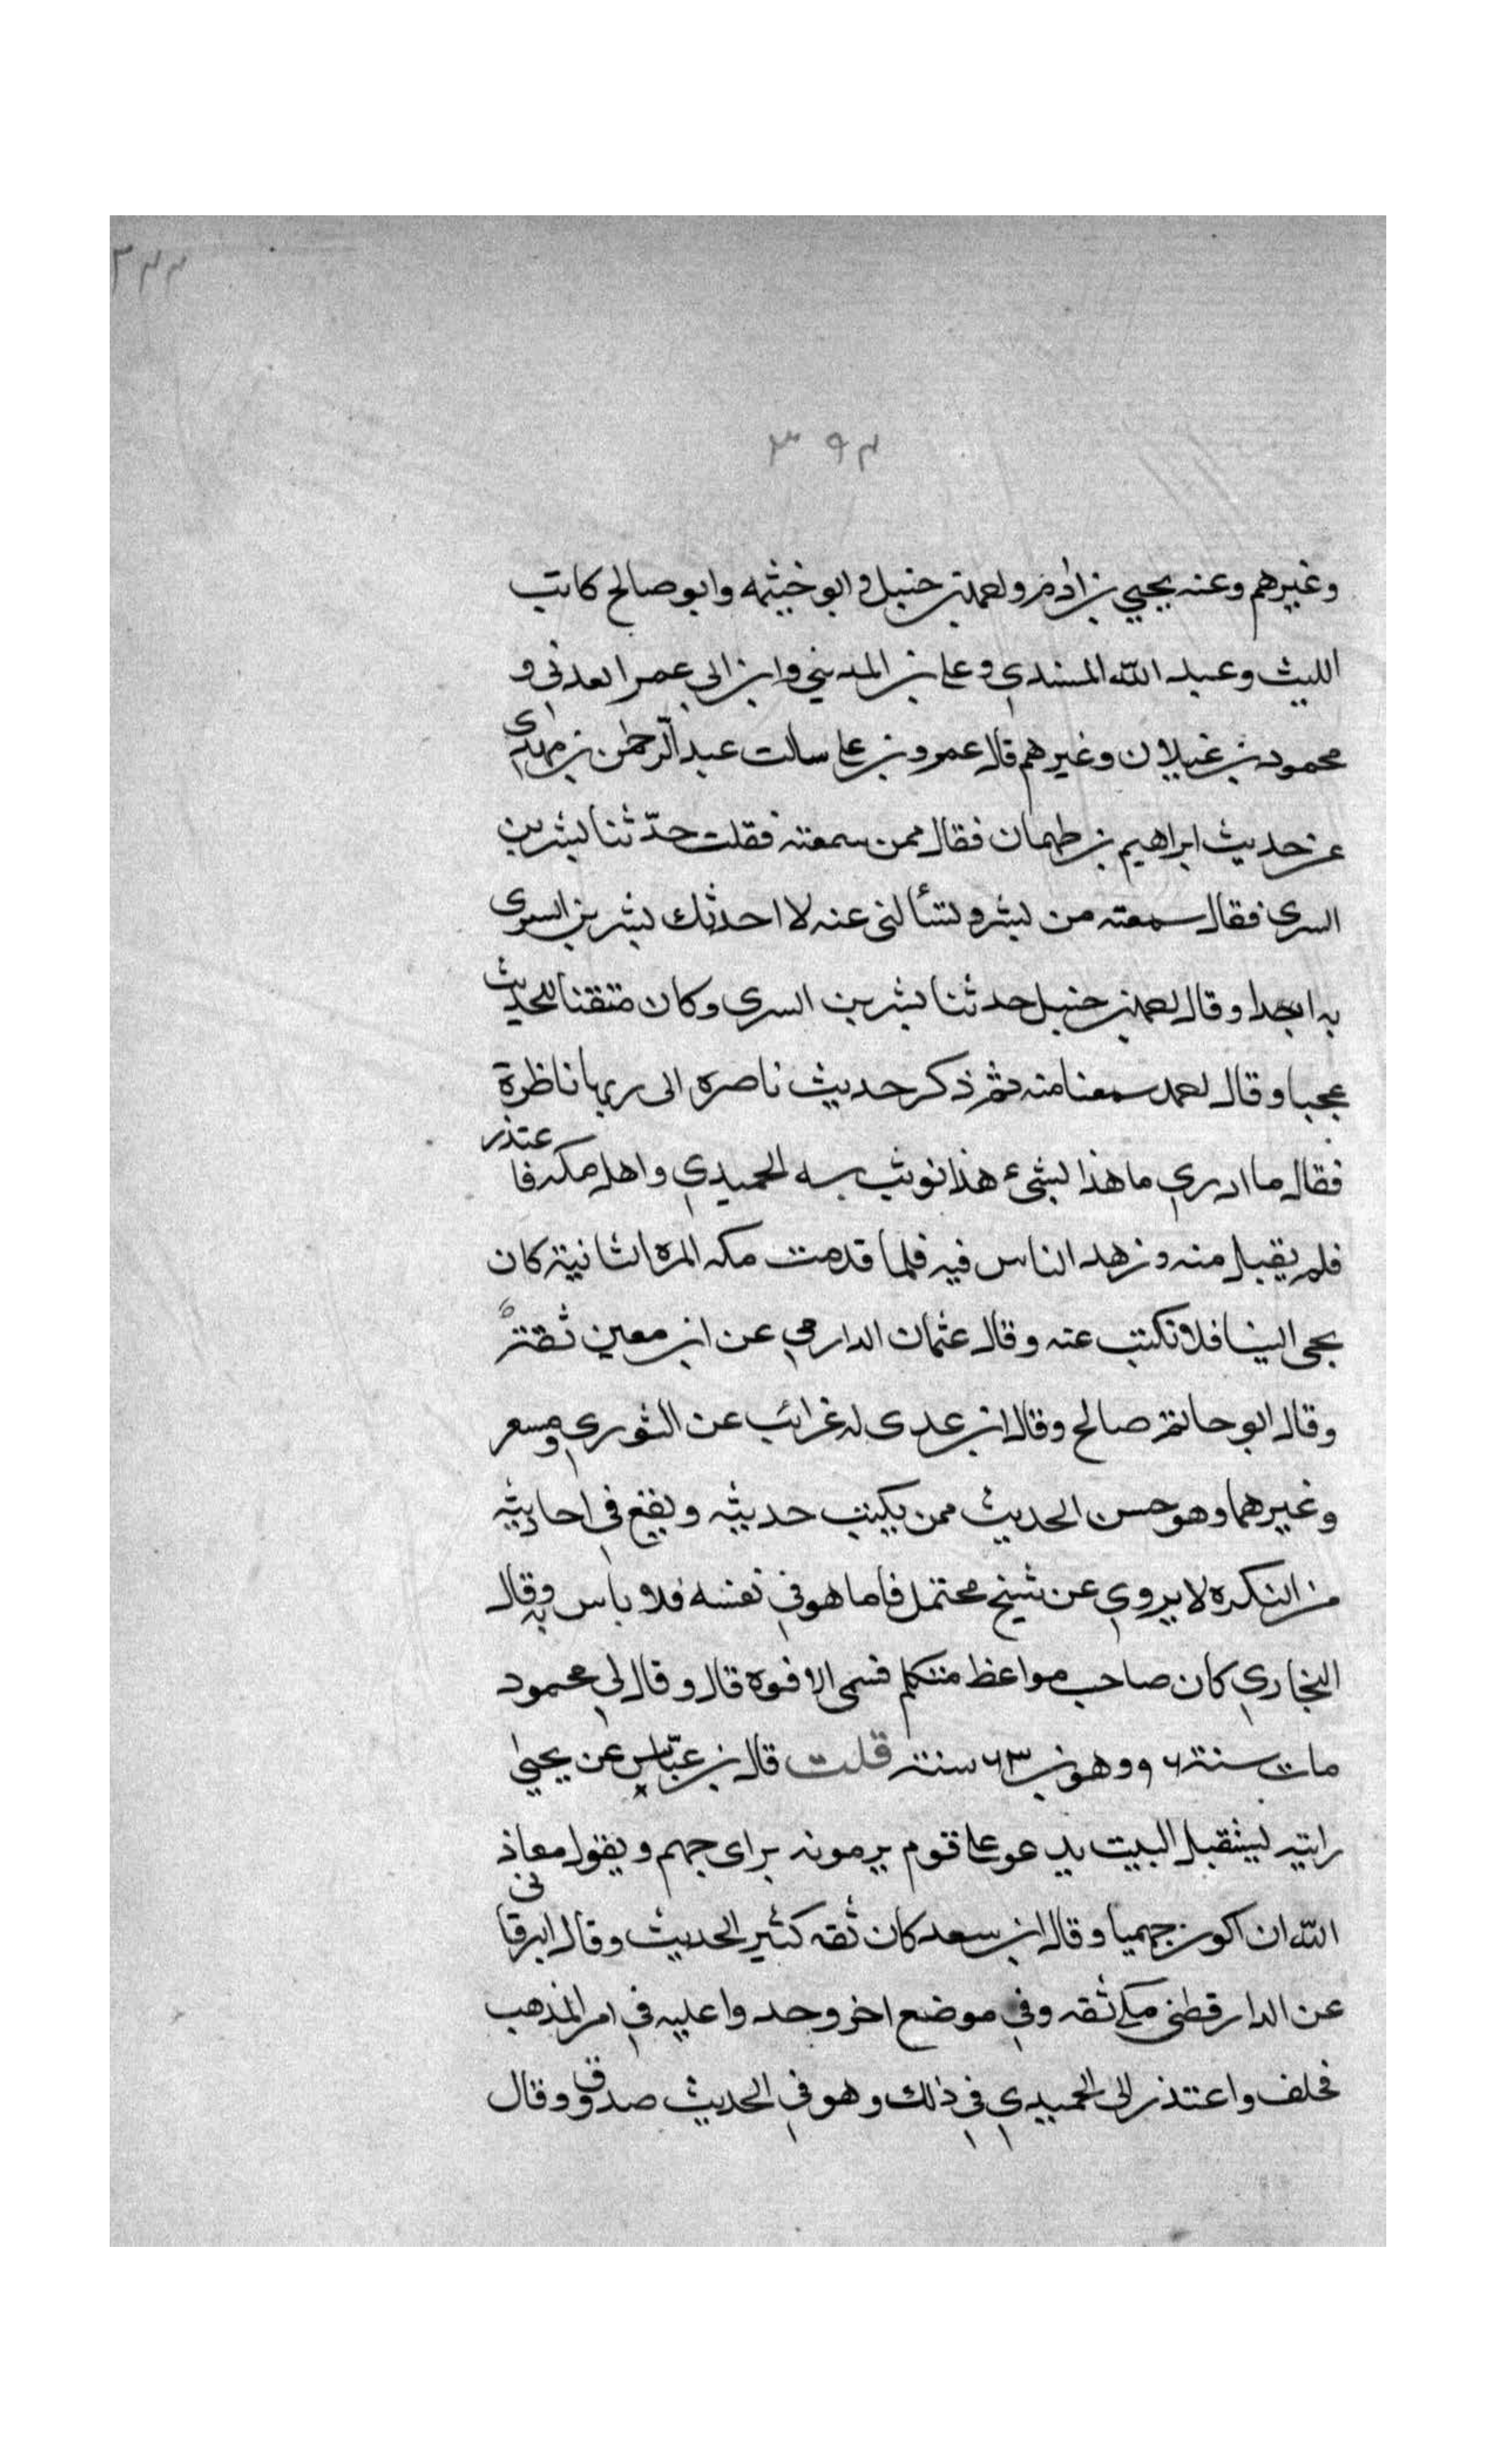 ٣٤٤
٣٩٣
وغيرهم وعنه يحيي بن ادم واحمد بن حنبل وابو خيثمه وابو صالح كاتب
الليث وعبد الله المسندي وعلي بن المديني وابن ابي عمر العدني و
محمود بن غيلان وغيرهم قال عمرو بن علي سالت عبد الرحمن بن مهدى
عن حديث ابراهيم بن طهمان فقال ممن سمعته فقلت حدّثنا بشر بن
السرى فقال سمعته من بشر وتسألنى عنه لا احدثك بشر بن السرى
به ابدا وقال احمد بن حنبل حدثنا بشر بن السرى وكان متقنا للحديث
عجبا وقال احمد سمعنا منه ثم ذكر حديث ناصره الى ربها ناظرة
فقال ما ادري ما هذا لشىء هذا فوثب به الحميدي واهل مكه فاعتذر
فلم يقبل منه وزهد الناس فيه فلما قدمت مكه المره الثانية كان
يجى الينا فلا نكتب عنه وقال عثمان الدارمي عن ابن معين ثقة
وقال ابو حاتم صالح وقال ابن عدى له غرائب عن الثوري ومسعر
وغيرهما وهو حسن الحديث ممن يكتب حديثه ويقع في احاديثه
من النكره لا يروي عن شيخ محتمل فاما هو في نفسه فلا باس به وقال
البخاري كان صاحب مواعظ متكلم فسمى الافوه قال وقال لي محمود
مات سنة وهو بن ٦٣ سنة قلت قال بن عبّاس عن يحيي
رايته ليثقبل البيت يدعو علي قوم يرمونه براى جهم ويقول معاذ
الله ان اكون جهميا وقال ابن سعد كان ثقه كثير الحديث وقال البرقانى
عن الدارقطنى مكي ثقه وفي موضع اخر وجدوا عليه في امر المذهب
فحلف واعتذر الى الحميدي في ذلك وهو في الحديث صدوق وقال